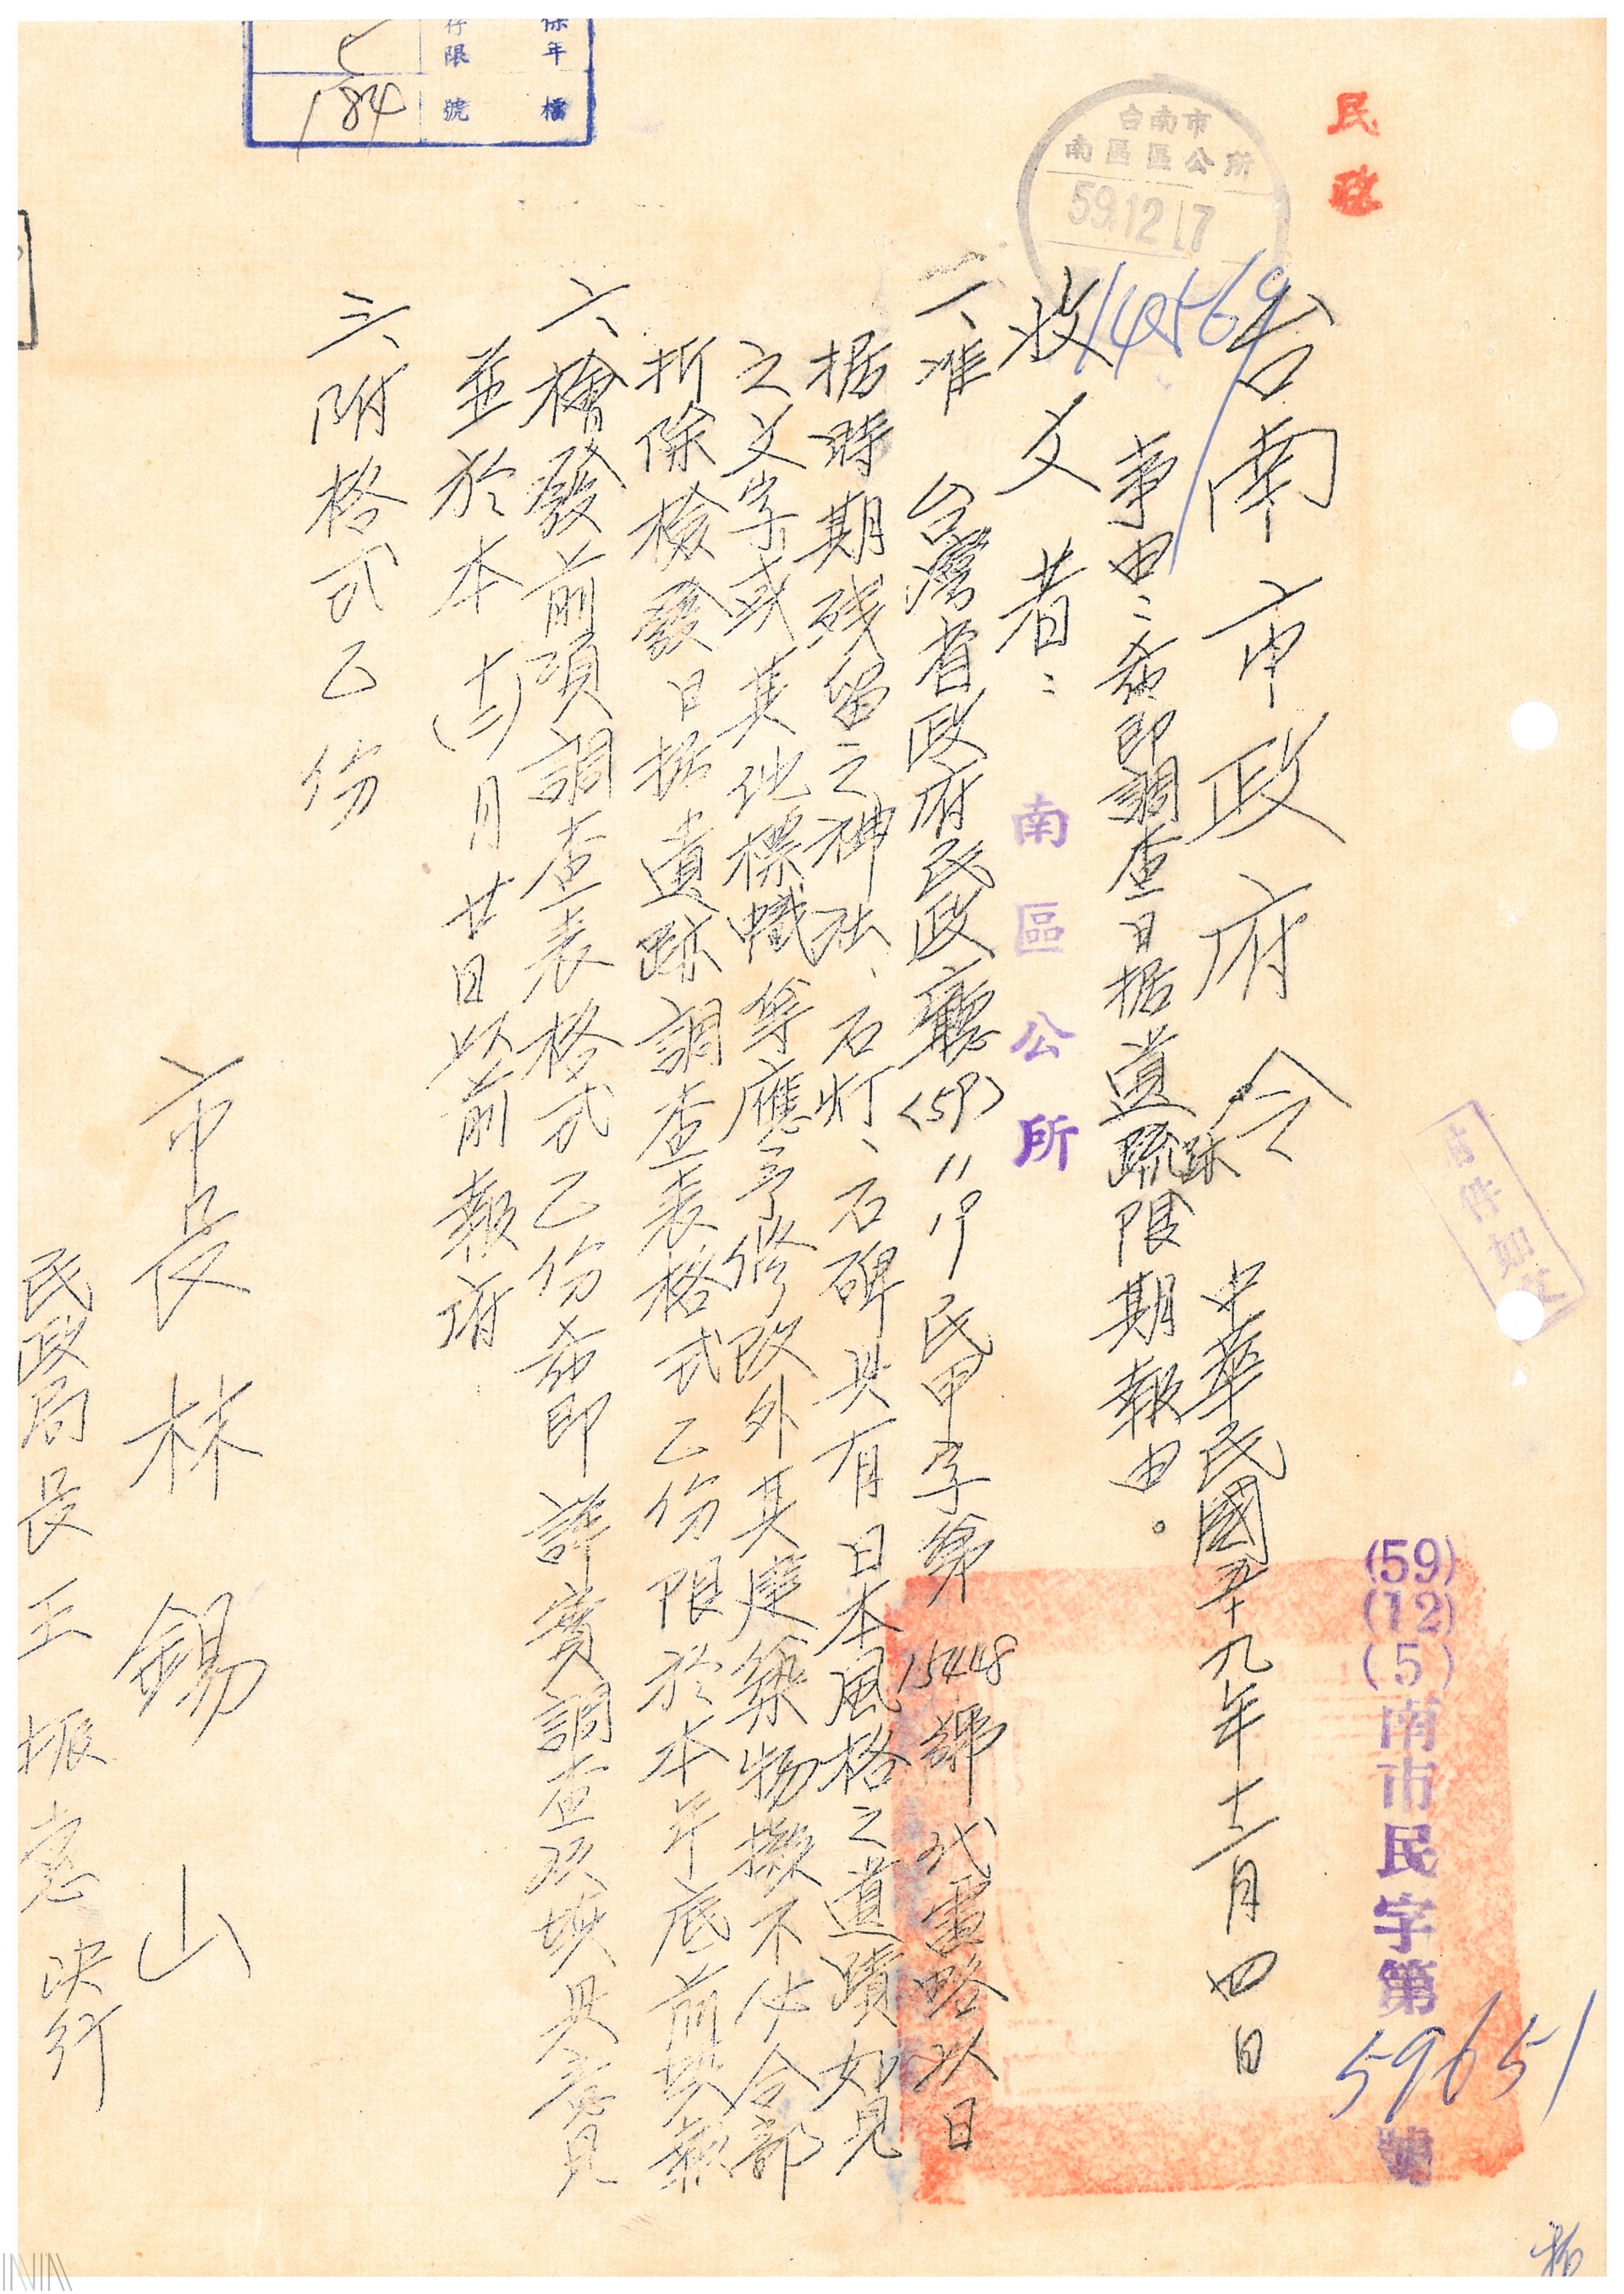 民政
台南市
南區區公所
59.12.17
14569
保年 存限 5
檔 號 184
(59)(12)(5)南市民字第59651號
台南市政府令
中華民國五十九年十二月四日
事由：希即調查日据遺跡限期報由。
收文者：南區公所
一、准 台灣省政府民政廳(59)11 19民甲字第15448號代電略以日
据時期殘留之神社、石灯、石碑具有日本風格之遺蹟如見
之文字或其他標幟等應予修改外其建築物擬不必全部
折除檢發日据遺跡調查表格式乙份限於本年底前填報
二、檢發前項調查表格式乙份希即詳實調查欵填具意見
並於本(十二)月廿日以前報府
三、附格式乙份
市長林錫山
民政局長王振惠決行